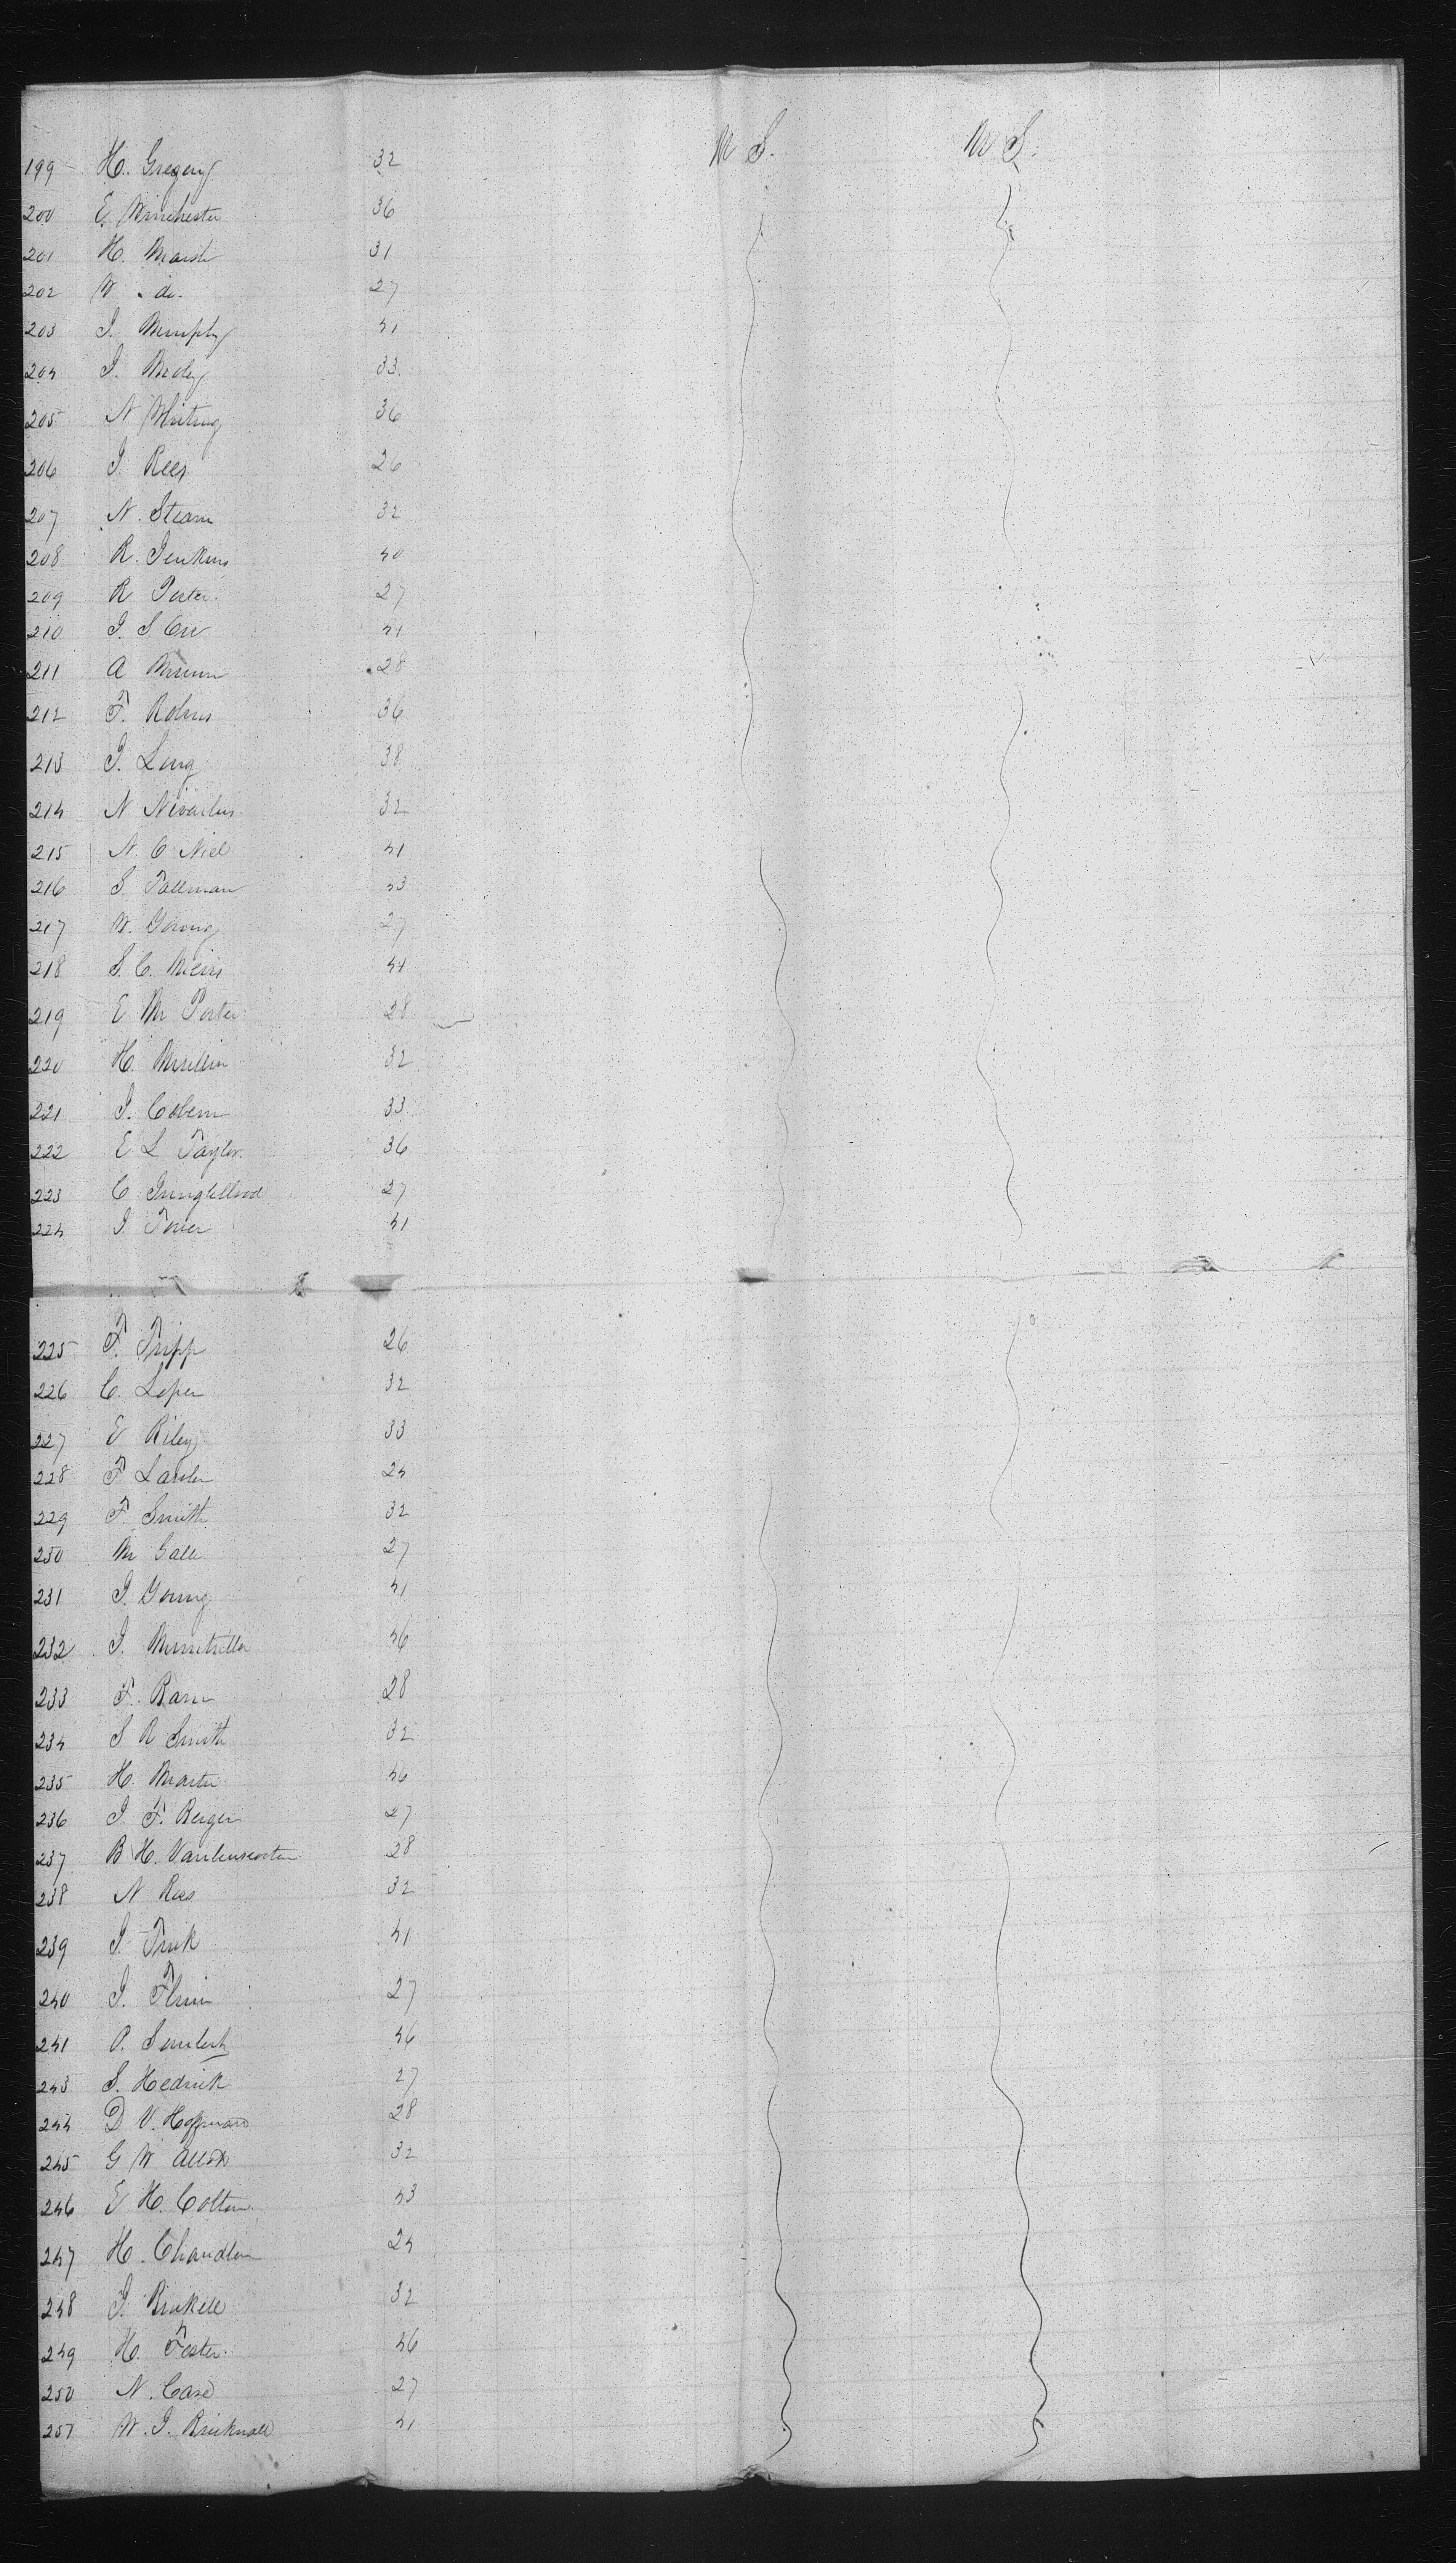 199 H. Gregory 32 U S. U S.
200 E. Winchester 36
201 H. Marsh 31
202 W. do. 27
203 J. Murphy 41
204 J. 33
205 N Whiting 36
206 J. Rees 26
207 N. Stearn 32
208 R. Jenkins 40
209 R Porter. 27
210 J. S. Orr 41
211 A 28
212 F. Robins 36
213 J. Long 38
214 N 32
215 N. O Niel 41
216 S. Tallman 43
217 W. Young 27
218 S. C. 41
219 E M Porter 28
220 H. Mullin 32
221 J. Coburn 33
222 E L Taylor. 36
223 C. 27
224 J. 41
225 F. Tripp 26
226 C. Loper 32
227 E Riley 33
228 F Lawler 24
229 F. Smith 32
230 M Gale 27
231 J. Young 41
232 J. 46
233 F. 28
234 S R Smith 32
235 H. 46
236 J F. Berger 27
237 B H. 28
238 N Rees 32
239 J. 41
240 J. Flinn 27
241 P. 46
243 S. Hedrick 27
244 D V. Hoffman 28
245 G W 32
246 E H. Colton 43
247 H. Chandler 24
248 J. 32
249 H. Foster. 46
250 N. Case 27
251 W. J. Bricknall 41